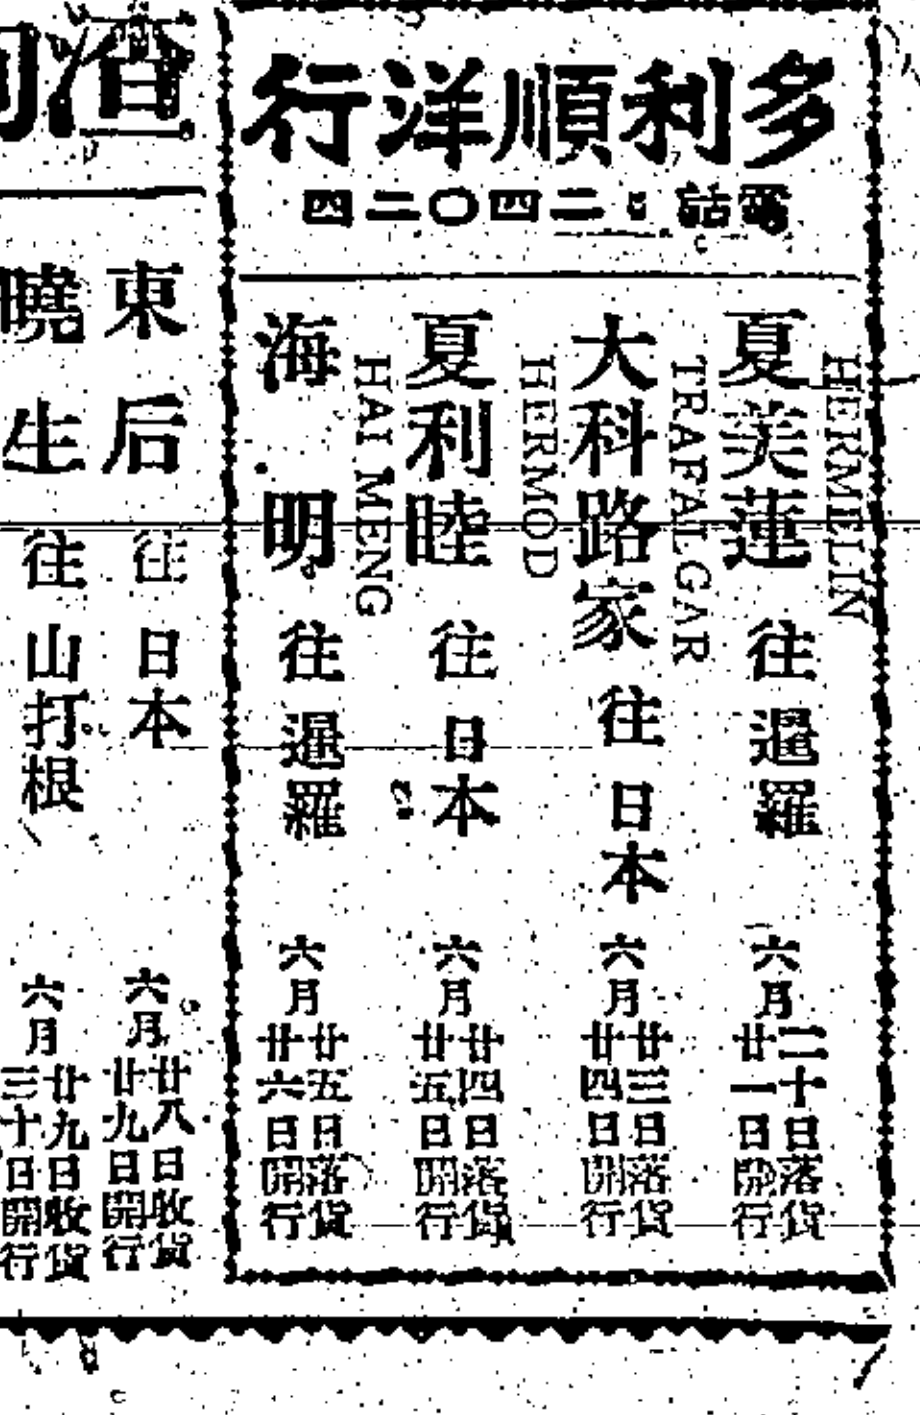 多利順洋行
電話：二四〇二四
HERMELIN
夏美蓮 往暹羅 六月
二十日落貨
廿一日開行
TRAFALGAR
大科路家 往日本 六月
廿三日落貨
廿四日開行
HERMOD
夏利睦 往日本 六月
廿四日落貨
廿五日開行
HAI MENG
海明 往暹羅 六月
廿五日落貨
廿六日開行
渣
東后 往日本 六月
廿八日收貨
廿九日開行
曉生 往山打根 六月
廿九日收貨
三十日開行